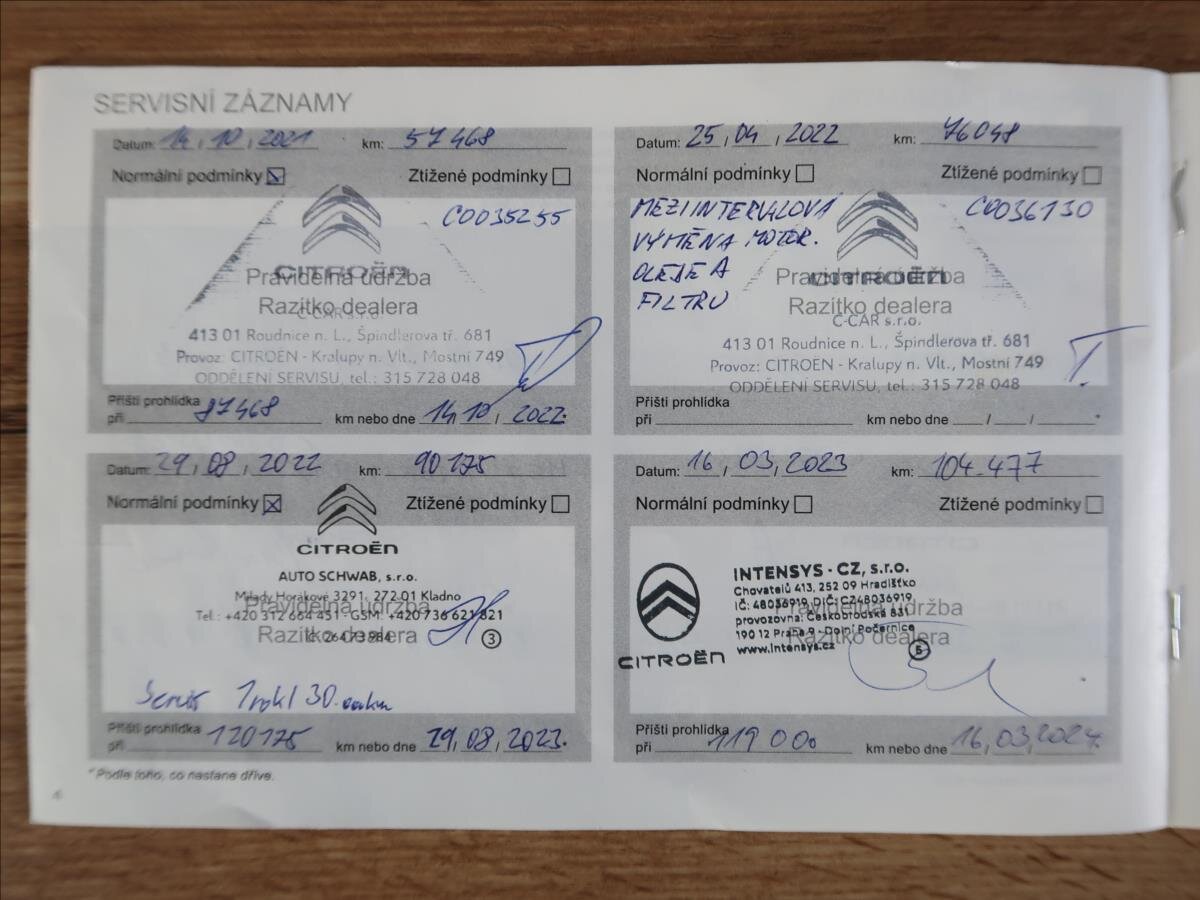 SERVISNÍ ZÁZNAMY
Datum: 14 / 10 / 2021 km: 57468
Normální podmínky Ztížené podmínky
C0035255
CITROËN
Pravidelná údržba
Razítko dealera
C-CAR s.r.o.
413 01 Roudnice n. L., Špindlerova tř. 681
Provoz: CITROËN - Kralupy n. Vlt., Mostní 749
ODDĚLENÍ SERVISU, tel.: 315 728 048
Příští prohlídka
při 87468 km nebo dne 14/10/2022.
Datum: 25 / 04 / 2022 km: 76048
Normální podmínky Ztížené podmínky
MEZIINTERVALOVÁ C0036130
VÝMĚNA MOTOR.
OLEJE A
FILTRU
CITROËN
Pravidelná údržba
Razítko dealera
C-CAR s.r.o.
413 01 Roudnice n. L., Špindlerova tř. 681
Provoz: CITROËN - Kralupy n. Vlt., Mostní 749
ODDĚLENÍ SERVISU, tel.: 315 728 048
Příští prohlídka
při km nebo dne / /
Datum: 29 / 08 / 2022 km: 90175
Normální podmínky Ztížené podmínky
CITROËN
AUTO SCHWAB, s.r.o.
Milady Horákové 3291, 272 01 Kladno
Pravidelná údržba
Tel.: +420 312 664 451 · GSM: +420 736 621 821
Razítko dealera
3
Servis 1rok/30.
Příští prohlídka
při 120175 km nebo dne 29/08/2023.
Datum: 16 / 03 / 2023 km: 104.477
Normální podmínky Ztížené podmínky
CITROËN
INTENSYS - CZ, s.r.o.
Chovatelů 413, 252 09 Hradištko
IČ: 48036919, DIČ: CZ48036919
Pravidelná údržba
provozovna: Českobrodská 831
190 12 Praha 9 - Dolní Počernice
Razítko dealera
www.intensys.cz
5
Příští prohlídka
při 119 000 km nebo dne 16/03/2024.
* Podle toho, co nastane dříve.
4